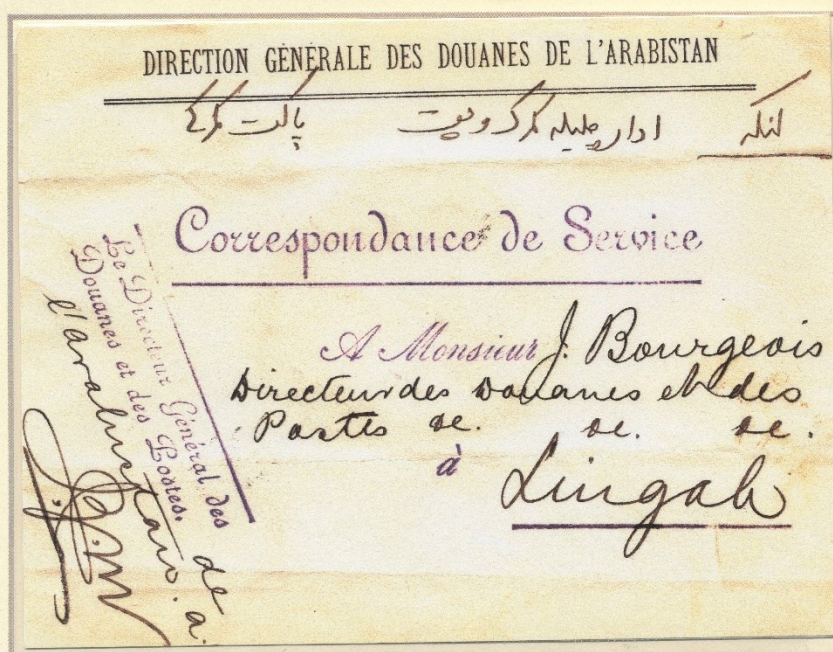 DIRECTION GÉNÉRALE DES DOUANES DE L'ARABISTAN
لنگه اداره جلیله گمرک و پست پاکت گمرکی
Correspondance de Service
A Monsieur J. Bourgeois
Directeur des Douanes et des
Postes &c. &c. &c.
à Lingah
Le Directeur Général des
Douanes et des Postes.
de l'Arabistan